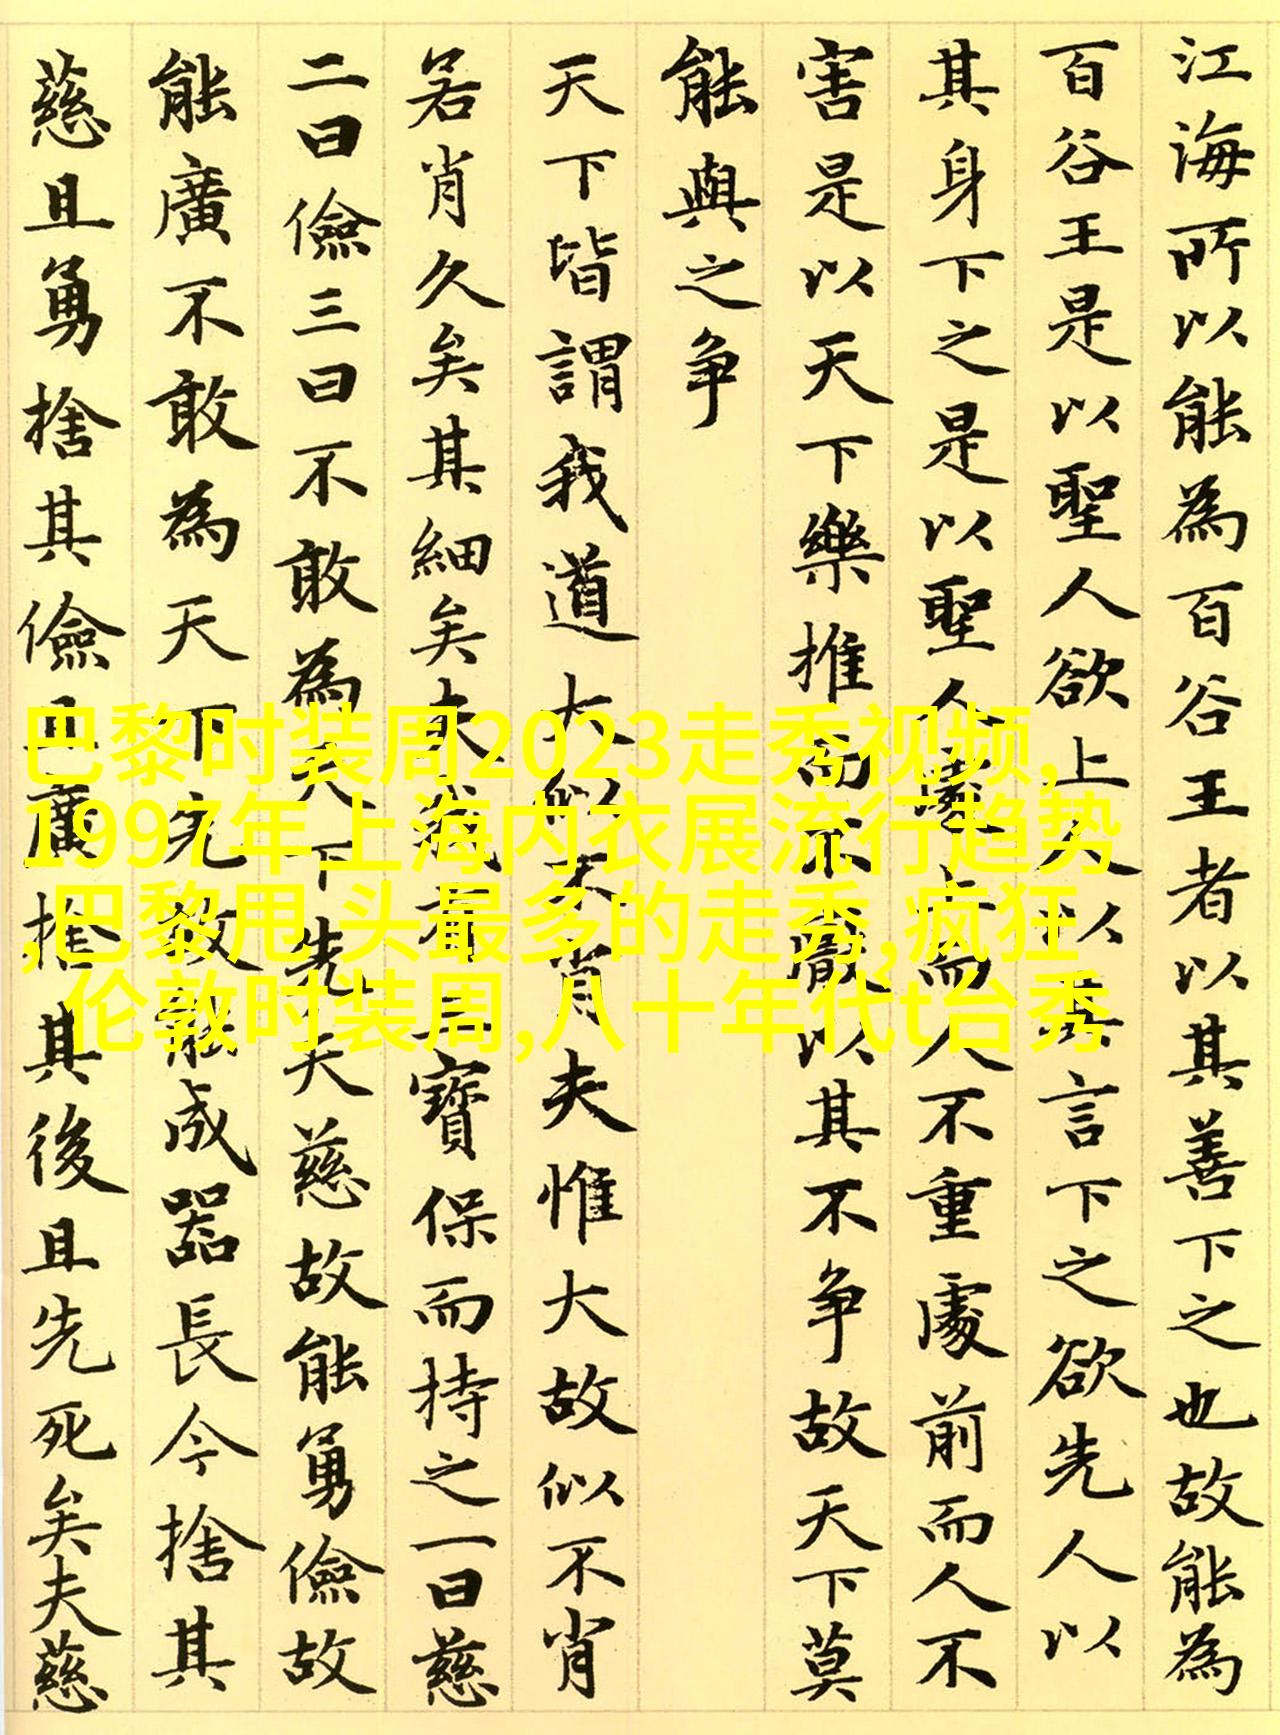 江海所以能為百谷王者以其善下之也故能為
百谷王是以聖人欲上人以其言下之欲先人以
其身下之是以聖人處上而人不重處前而人不
害是以天下樂推而不厭以其不争故天下莫
能與之争
天下皆謂我道大似不肖夫惟大故似不肖
若肖久矣其細矣夫我有三寶保而持之一曰慈
二曰儉三曰不敢為天下先夫慈故能勇儉故
能廣不敢為天下先故能成器長今捨其
慈且勇捨其儉且廣捨其後且先死矣夫慈
巴黎时装周2023走秀视频,
1997年上海内衣展流行趋势
,巴黎甩 头最多的走秀,疯狂
伦敦时装周,八十年代t台秀